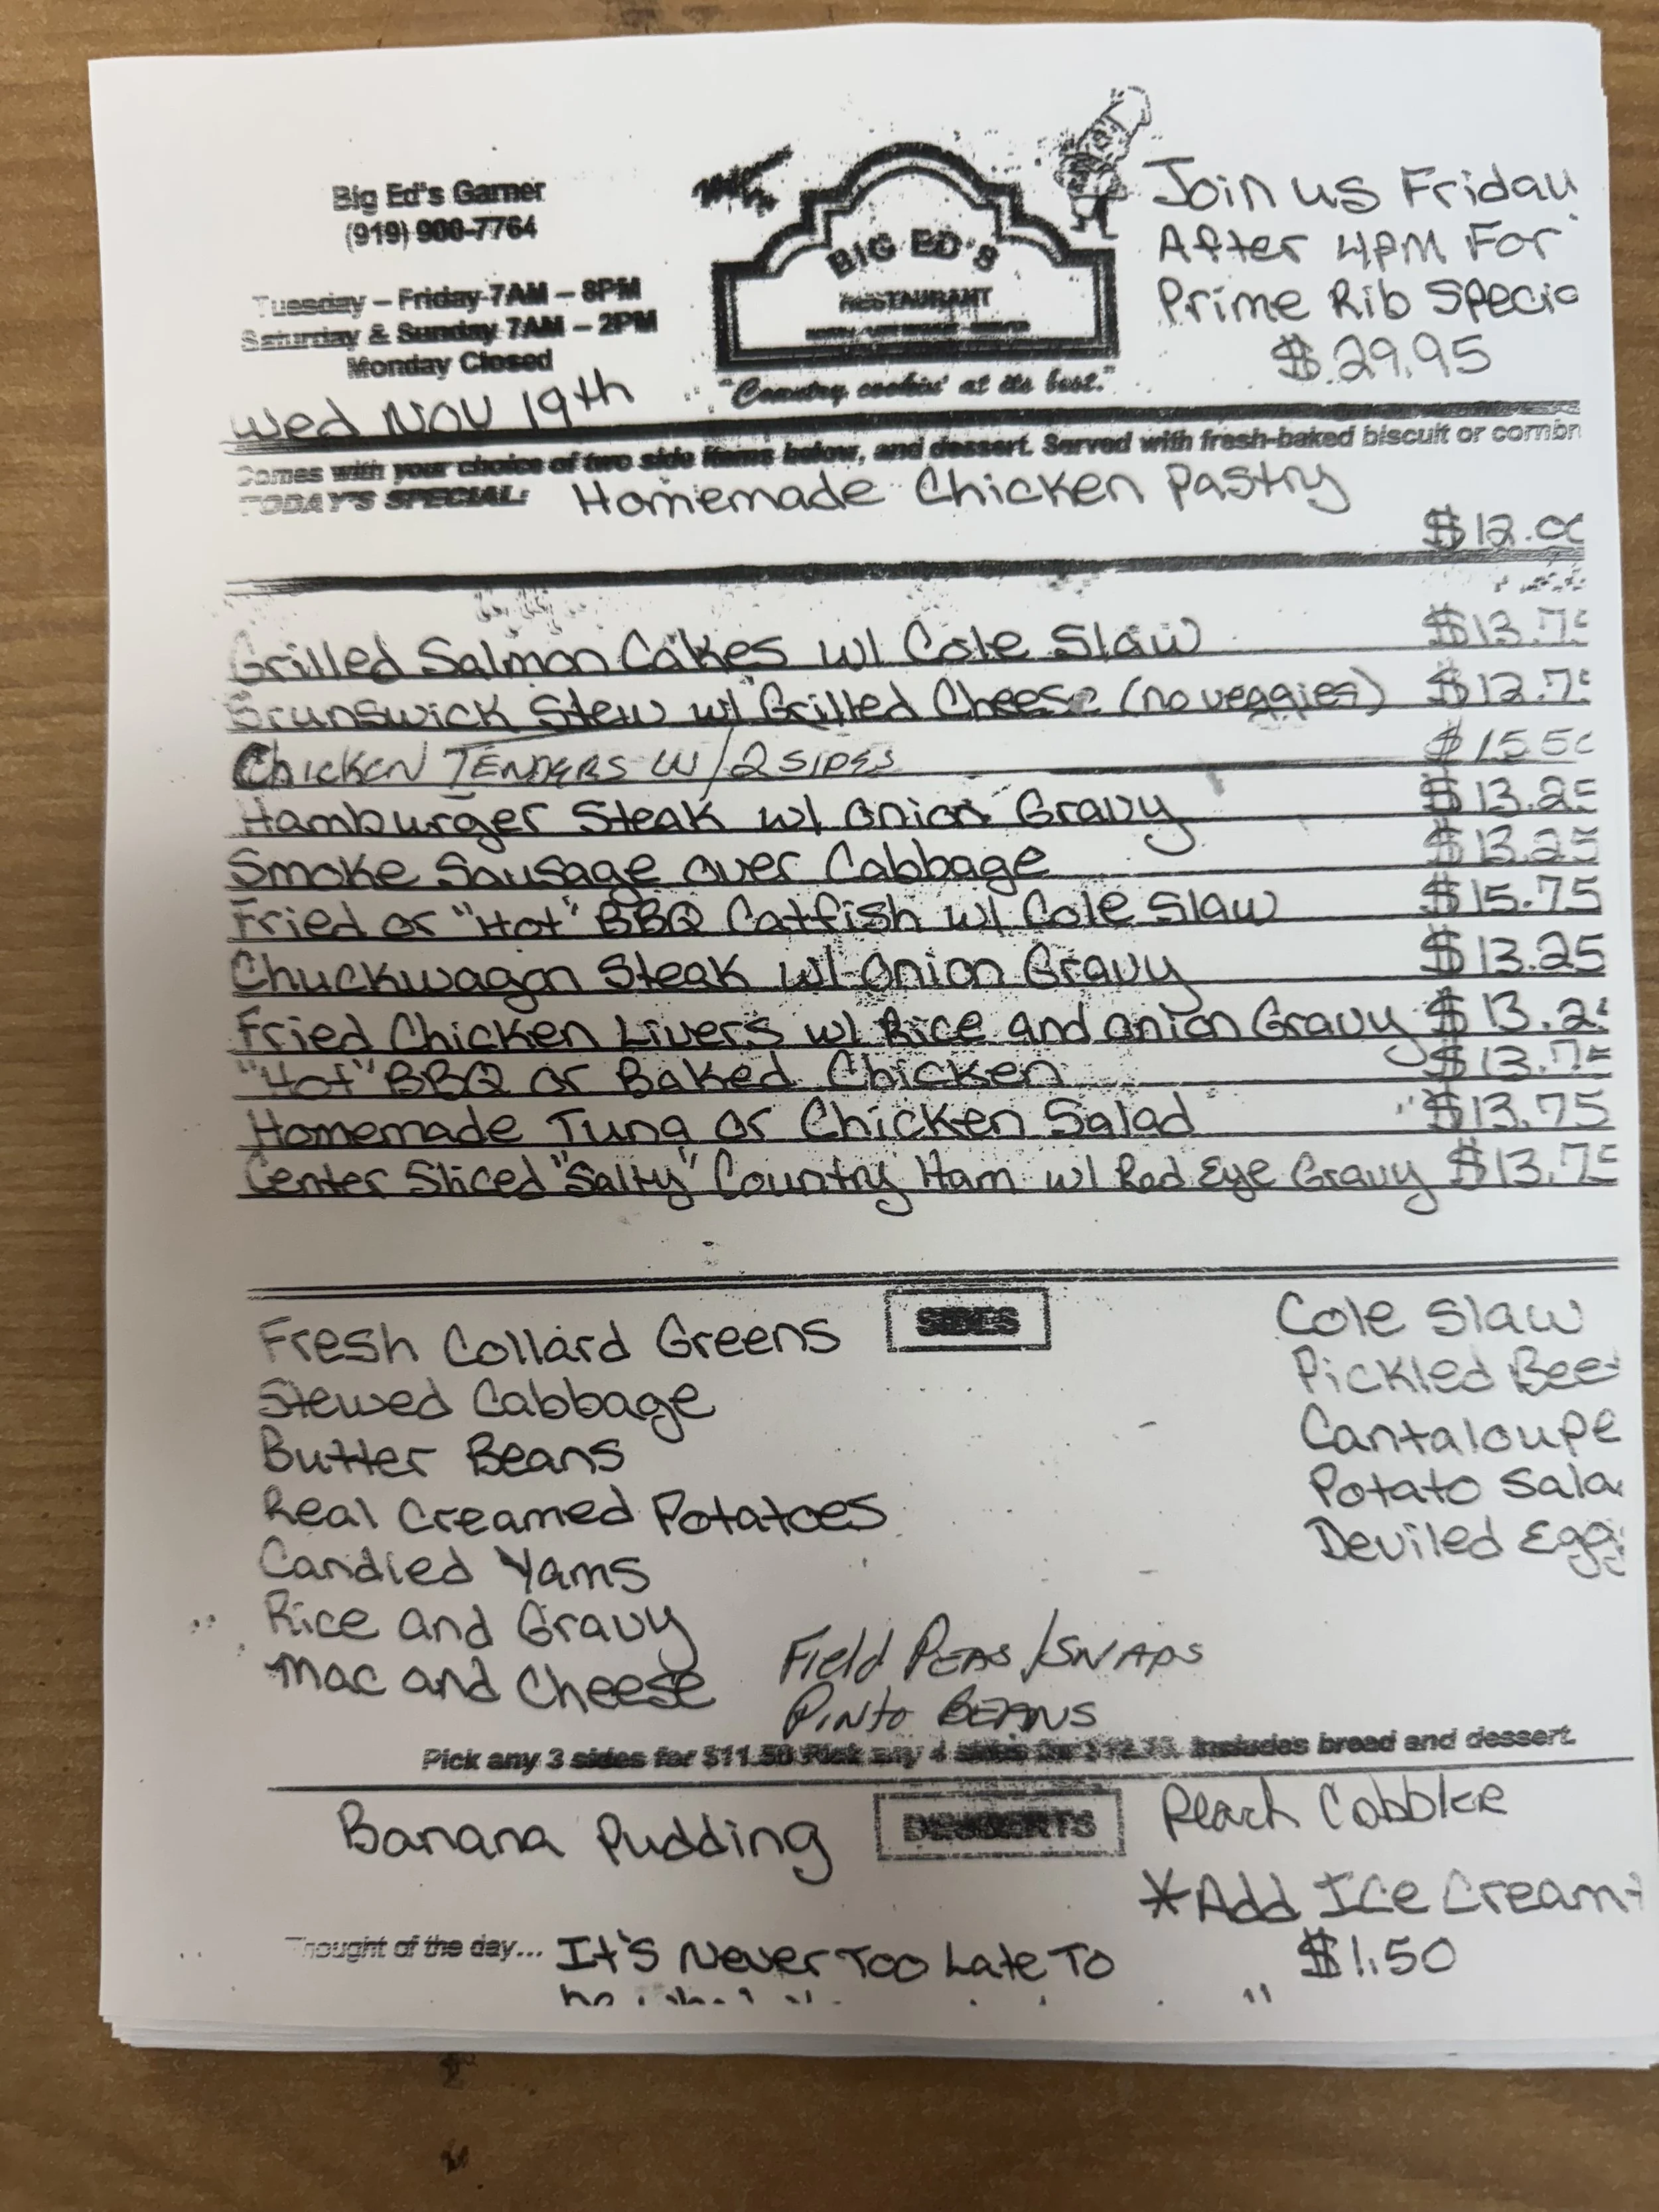 Big Ed's Garner
(919) 900-7764
Tuesday – Friday 7AM – 8PM
Saturday & Sunday 7AM – 2PM
Monday Closed
Wed Nov 19th
BIG ED'S
RESTAURANT
"Country cookin' at its best."
Join us Friday
After 4PM For
Prime Rib Specia
$29.95
Comes with your choice of two side items below, and dessert. Served with fresh-baked biscuit or cornbr
TODAY'S SPECIAL: Homemade Chicken Pastry
$12.00
Grilled Salmon Cakes w/ Cole Slaw $13.75
Brunswick Stew w/ Grilled Cheese (no veggies) $12.75
Chicken TENDERS W/2 SIDES $15.50
Hamburger Steak w/ Onion Gravy $13.25
Smoke Sausage over Cabbage $13.25
Fried or "Hot" BBQ Catfish w/ Cole Slaw $15.75
Chuckwagon Steak w/ Onion Gravy $13.25
Fried Chicken Livers w/ Rice and Onion Gravy $13.25
"Hot" BBQ or Baked Chicken $13.75
Homemade Tuna or Chicken Salad $13.75
Center Sliced "Salty" Country Ham w/ Red Eye Gravy $13.75
SIDES
Fresh Collard Greens
Stewed Cabbage
Butter Beans
Real Creamed Potatoes
Candied Yams
Rice and Gravy
Mac and Cheese
Field PEAS/SNAPS
Pinto BEANS
Cole Slaw
Pickled Beet
Cantaloupe
Potato Sala
Deviled Eggs
Pick any 3 sides for $11.50 Pick any 4 sides for $12.75. Includes bread and dessert.
DESSERTS
Banana Pudding
Peach Cobbler
*Add Ice Cream
$1.50
Thought of the day... It's Never Too Late To